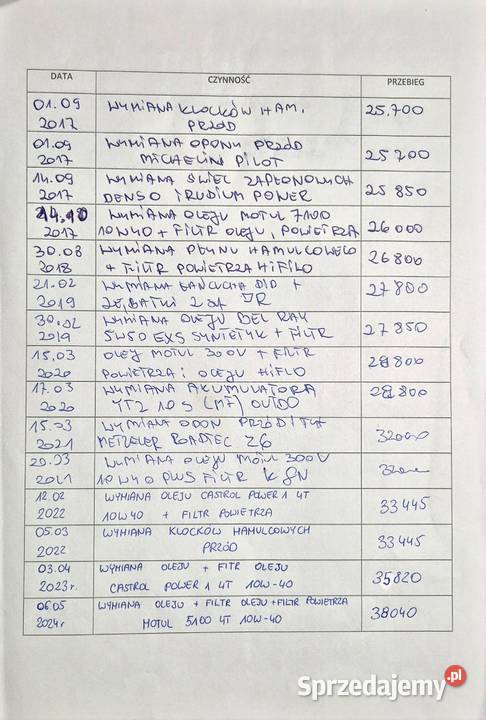 DATA CZYNNOŚĆ PRZEBIEG
01.09 WYMIANA KLOCKÓW HAM. 25,700
2017 PRZÓD
01.09 WYMIANA OPONY PRZÓD
2017 MICHELIN PILOT 25 700
14.09 WYMIANA ŚWIEC ZAPŁONOWYCH
2017 DENSO IRUDIUM POWER 25 850
14.10 WYMIANA OLEJU MOTUL 7100
2017 10W40 + FILTR OLEJU, POWIETRZA 26000
30.08 WYMIANA PŁYNU HAMULCOWEGO
2018 + FILTR POWIETRZA HIFLO 26800
21.02 WYMIANA ŁAŃCUCHA DID +
2019 ZĘBATKI JR 27800
30.02 WYMIANA OLEJU BEL RAY
2019 5W50 EXS SYNTETYK + FILTR 27850
15.03 OLEJ MOTUL 300V + FILTR
2020 POWIETRZA i OLEJU HIFLO 28800
17.03 WYMIANA AKUMULATORA
2020 YTZ 10S (MF) 28800
15.03 WYMIANA OPON PRZÓD i TYŁ
2021 METZELER ROADTEC Z6 32000
20.03 WYMIANA OLEJU MOTUL 300V
2021 10W40 PLUS FILTR K&N 32000
12.02 WYMIANA OLEJU CASTROL POWER 1 4T
2022 10W40 + FILTR POWIETRZA 33445
05.03 WYMIANA KLOCKÓW HAMULCOWYCH
2022 PRZÓD 33445
03.04 WYMIANA OLEJU + FITR OLEJU
2023r. CASTROL POWER 1 4T 10W-40 35820
06.05 WYMIANA OLEJU + FILTR OLEJU + FILTR POWIETRZA
2024r MOTUL 5100 4T 10W-40 38040
Sprzedajemy.pl